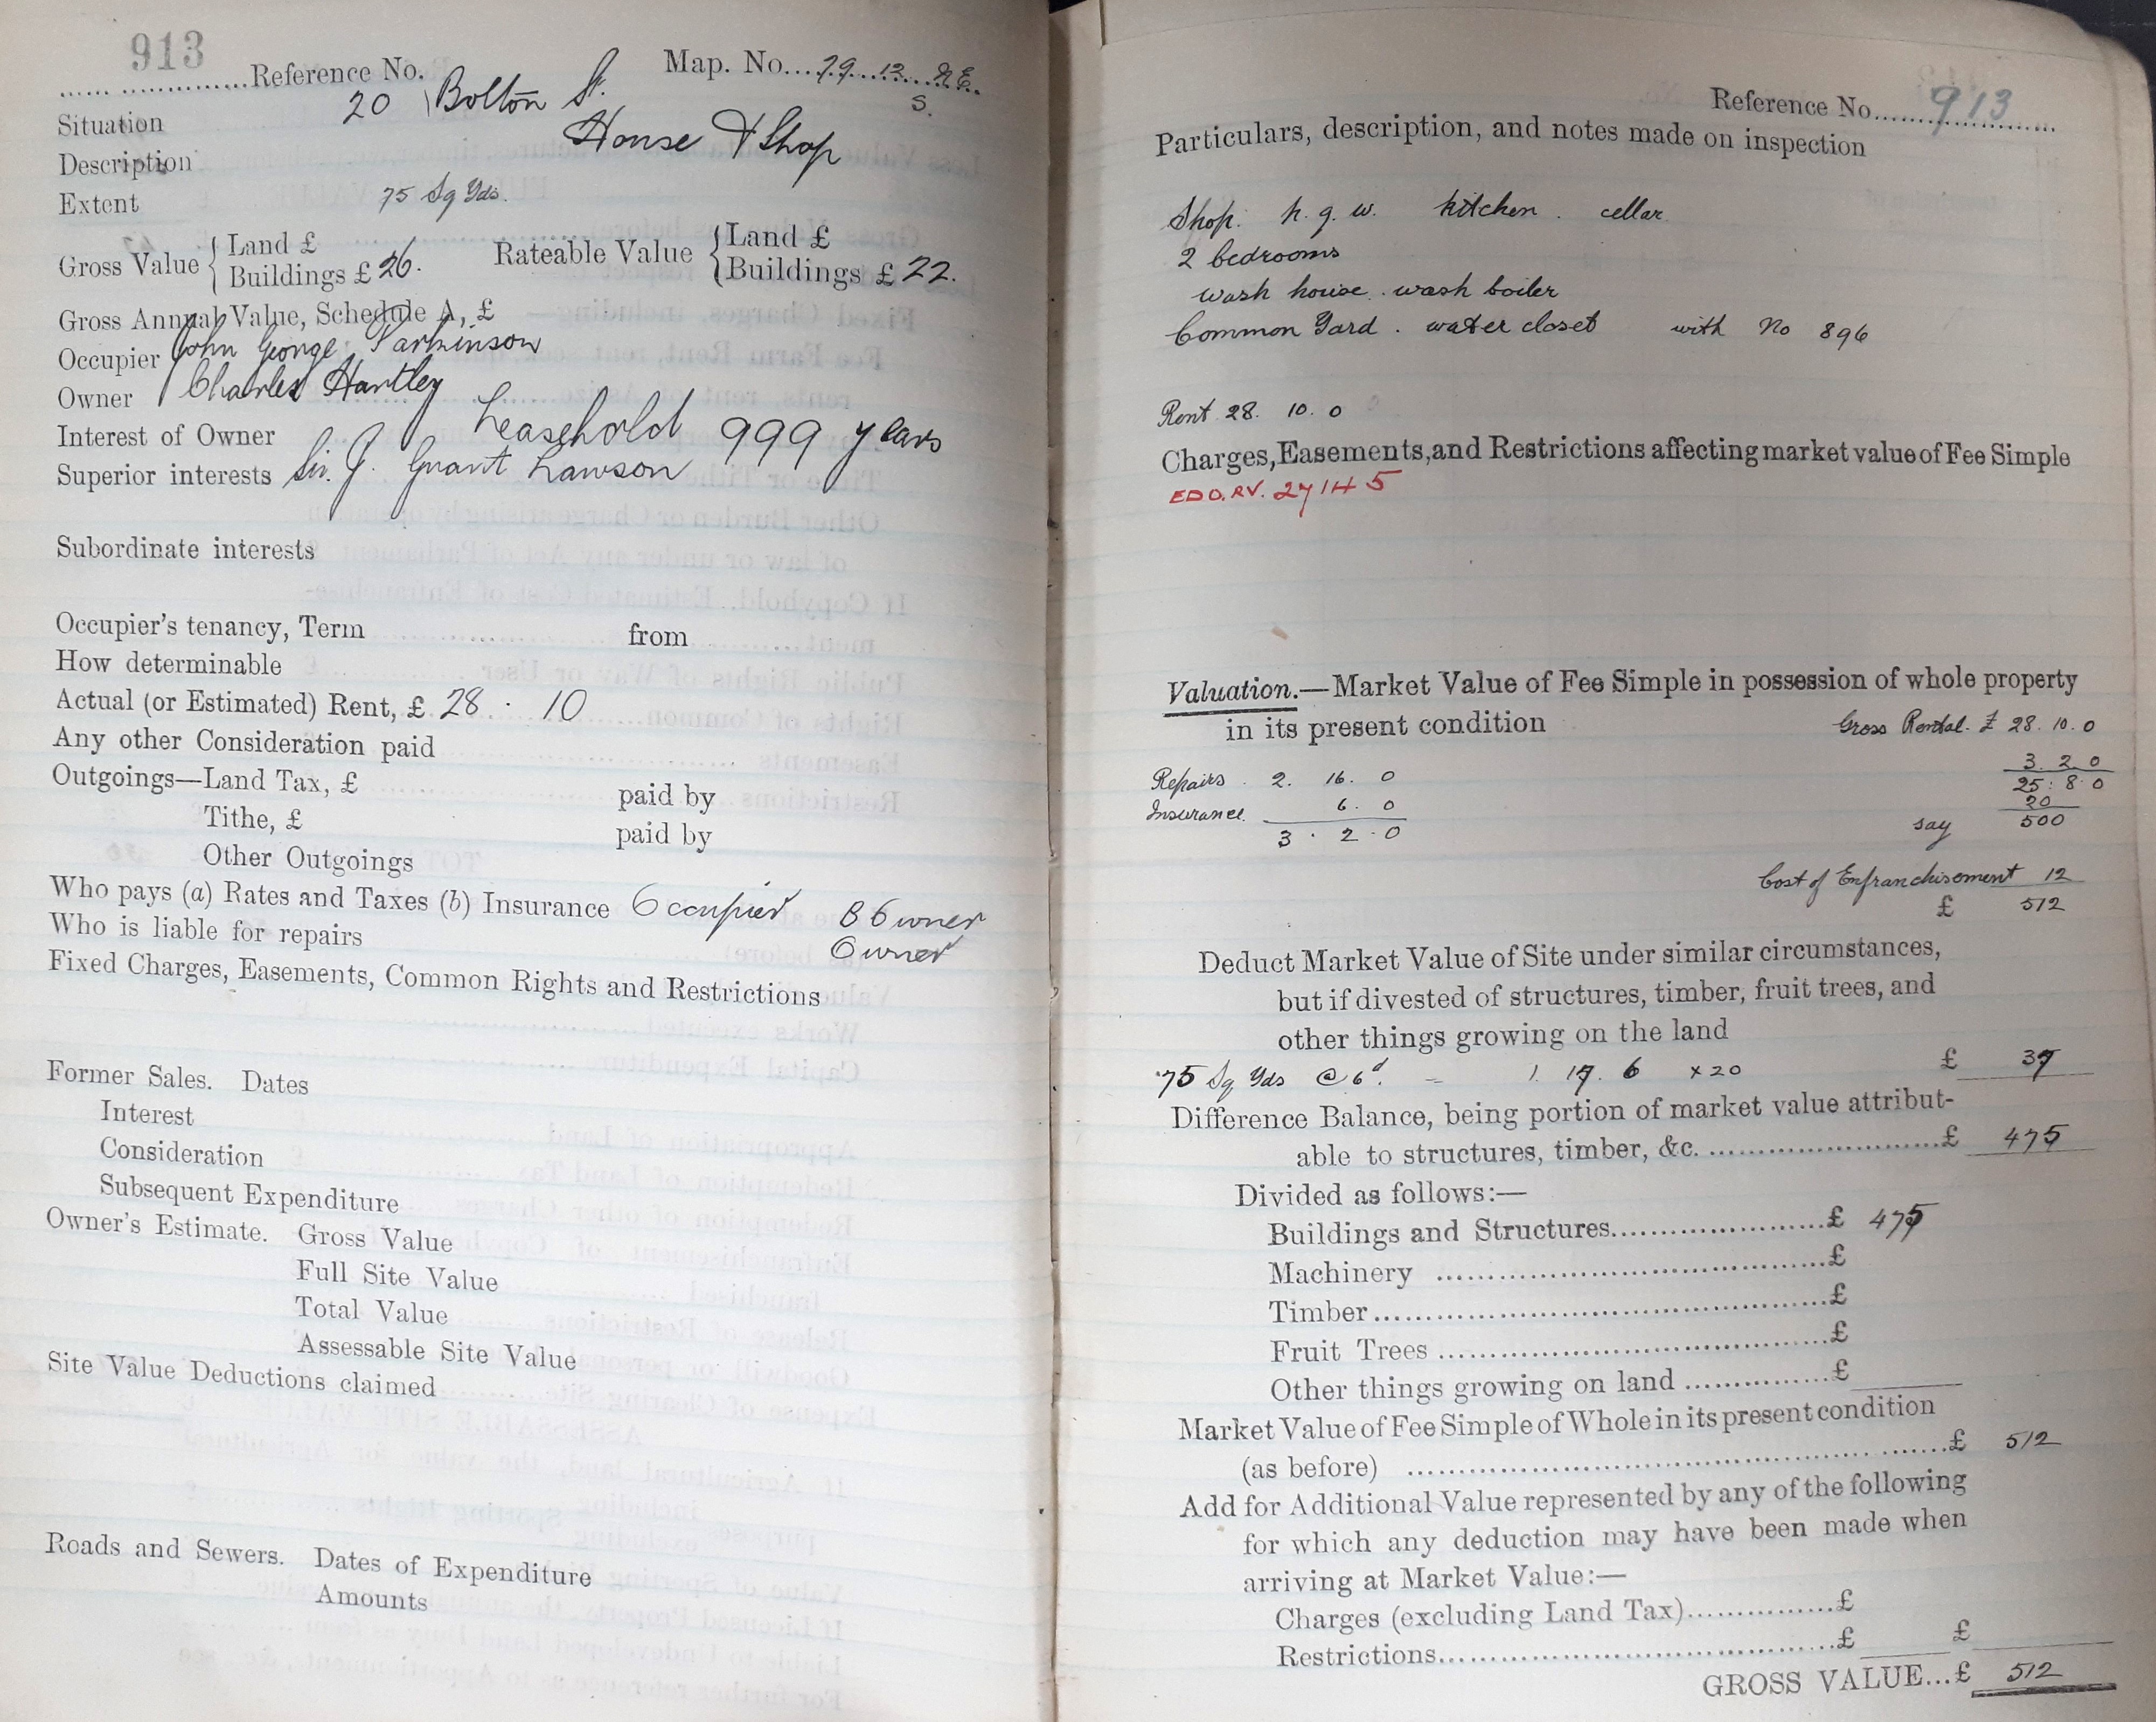 913
Reference No. Map. No. 79. 12. N.E.
S.
Situation 20 Bolton St.
Description House & Shop
Extent 75 Sq Yds.
Gross Value { Land £ Rateable Value { Land £
Buildings £ 26. Buildings £ 22.
Gross Annual Value, Schedule A, £
Occupier John George Parkinson
Owner Charles Hartley
Interest of Owner Leasehold 999 years
Superior interests Sir J. Grant Lawson
Subordinate interests
Occupier's tenancy, Term from
How determinable
Actual (or Estimated) Rent, £ 28 . 10
Any other Consideration paid
Outgoings—Land Tax, £ paid by
Tithe, £ paid by
Other Outgoings
Who pays (a) Rates and Taxes (b) Insurance Occupier B Owner
Who is liable for repairs Owner
Fixed Charges, Easements, Common Rights and Restrictions
Former Sales. Dates
Interest
Consideration
Subsequent Expenditure
Owner's Estimate. Gross Value
Full Site Value
Total Value
Assessable Site Value
Site Value Deductions claimed
Roads and Sewers. Dates of Expenditure
Amounts
Reference No. 913
Particulars, description, and notes made on inspection
Shop. h. g. w. kitchen. cellar
2 bedrooms
wash house. wash boiler
Common Yard. water closet with No 896
Rent 28. 10. 0
Charges, Easements, and Restrictions affecting market value of Fee Simple
EDO. RV. 27/H 5
Valuation.—Market Value of Fee Simple in possession of whole property
in its present condition Gross Rental. £ 28. 10. 0
Repairs. 2. 16. 0 3. 2. 0
25. 8. 0
Insurance. 6. 0 20
3. 2. 0 say 500
Cost of Enfranchisement 12
£ 512
Deduct Market Value of Site under similar circumstances,
but if divested of structures, timber, fruit trees, and
other things growing on the land
75 Sq Yds @ 6d. = 1. 17. 6 x 20 £ 37
Difference Balance, being portion of market value attribut-
able to structures, timber, &c. £ 475
Divided as follows:—
Buildings and Structures £ 475
Machinery £
Timber £
Fruit Trees £
Other things growing on land £
Market Value of Fee Simple of Whole in its present condition
(as before) £ 512
Add for Additional Value represented by any of the following
for which any deduction may have been made when
arriving at Market Value:—
Charges (excluding Land Tax) £
Restrictions £ £
GROSS VALUE... £ 512